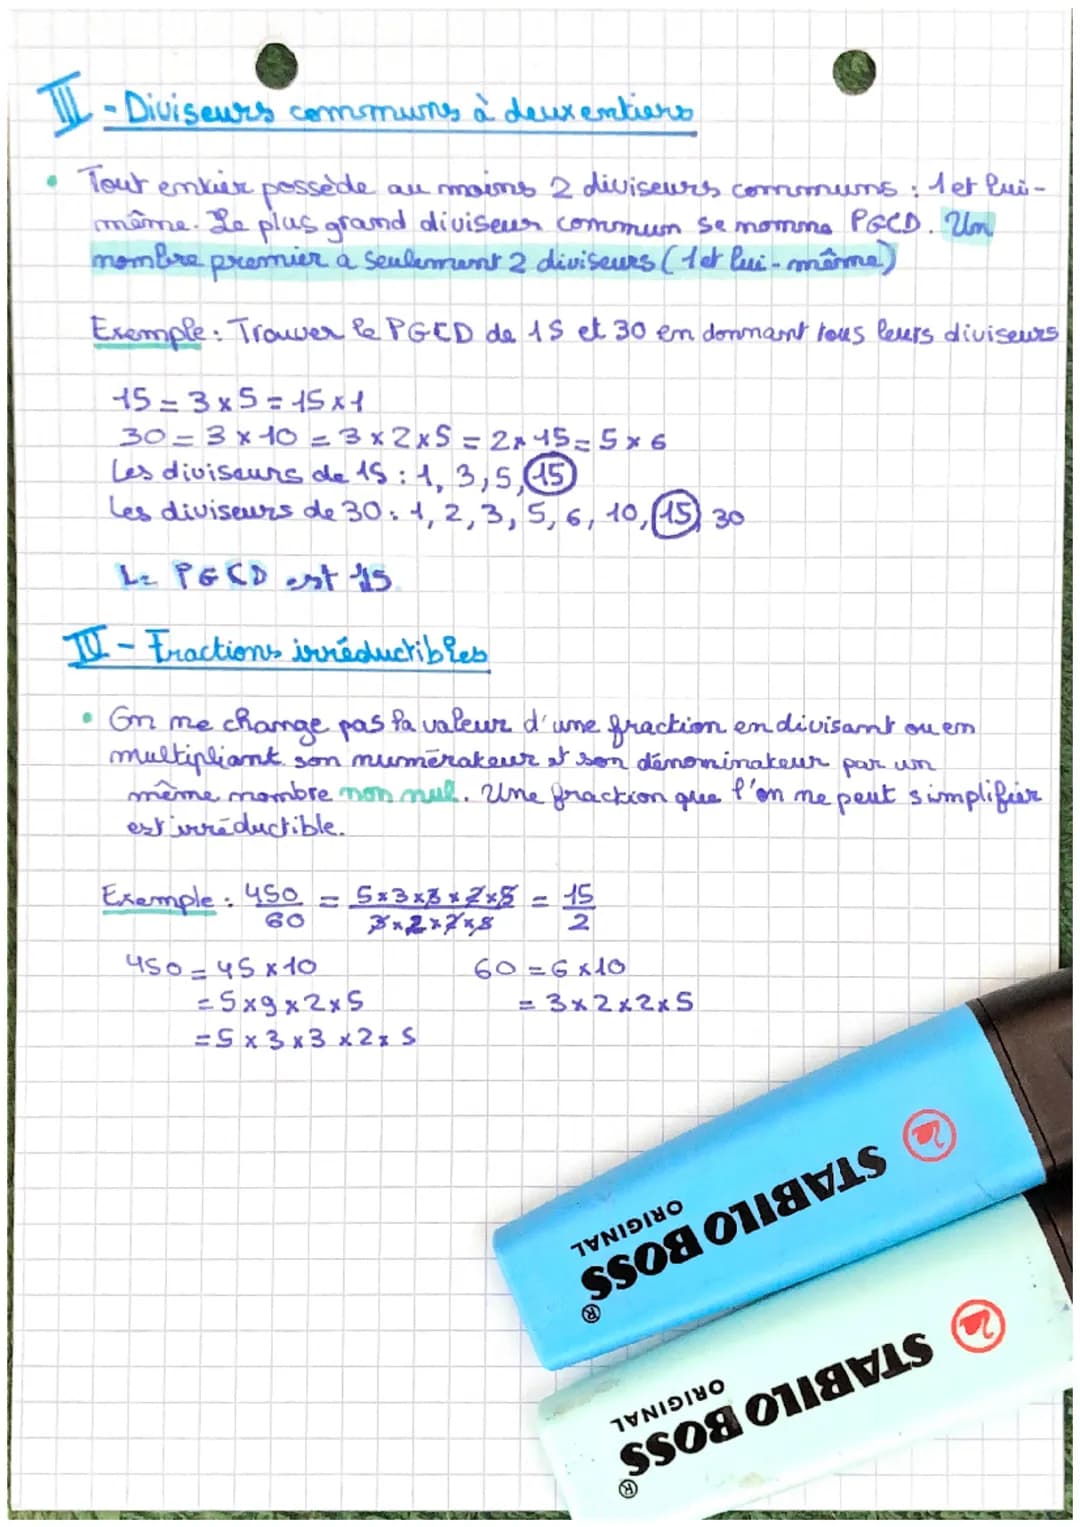 III - Diviseurs communs à deux entiers
• Tout entier possède au moins 2 diviseurs communs : 1 et lui-
même. Le plus grand diviseur commun se nomme PGCD. Un
nombre premier a seulement 2 diviseurs (1 et lui-même)
Exemple : Trouver le PGCD de 15 et 30 en donnant tous leurs diviseurs
15 = 3 x 5 = 15 x 1
30 = 3 x 10 = 3 x 2 x 5 = 2 x 15 = 5 x 6
Les diviseurs de 15 : 1, 3, 5, 15
Les diviseurs de 30 : 1, 2, 3, 5, 6, 10, 15, 30
Le PGCD est 15
IV - Fractions irréductibles
• On ne change pas la valeur d'une fraction en divisant ou en
multipliant son numérateur et son dénominateur par un
même nombre non nul. Une fraction que l'on ne peut simplifier
est irréductible.
Exemple : 450/60 = 5x3x3x2x5/3x2x2x5 = 15/2
450 = 45 x 10 60 = 6 x 10
= 5 x 9 x 2 x 5 = 3 x 2 x 2 x 5
= 5 x 3 x 3 x 2 x 5
STABILO BOSS®
ORIGINAL
STABILO BOSS®
ORIGINAL